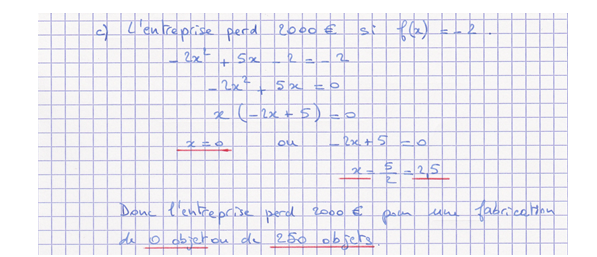 c) L'entreprise perd 2000 € si f(x) = -2.
-2x² + 5x - 2 = -2
-2x² + 5x = 0
x (-2x + 5) = 0
x = 0 ou -2x + 5 = 0
x = 5/2 = 2,5
Donc l'entreprise perd 2000 € pour une fabrication
de 0 objet ou de 250 objets.